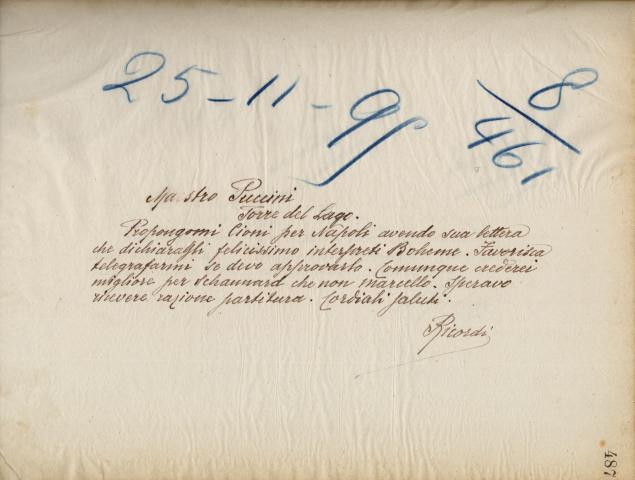 25-11-95
8/461
Maestro Puccini
Torre del Lago.
Propongomi Cioni per Napoli avendo sua lettera
che dichiaragli felicissimo interpreti Boheme. Favorisca
telegrafarmi se devo approvarlo. Comunque crederei
migliore per Schaunard che non Marcello. Speravo
ricevere razione partitura. Cordiali saluti.
Ricordi
487